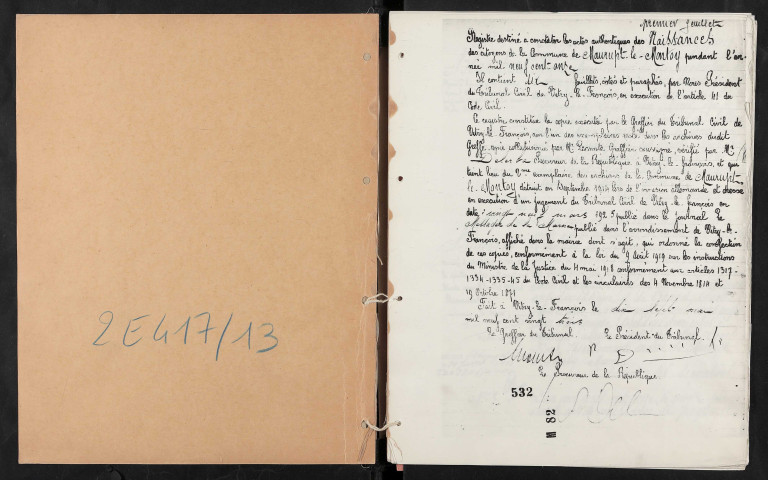 2E417/13
Premier feuillet
Registre destiné a constater les actes authentiques des Naissances
des citoyens de la Commune de Maurupt-le-Montoy pendant l'an-
née mil neuf cent onze
Il contient dix feuillets, cotés et paraphés, par Nous Président
du Tribunal Civil de Vitry-le-François, en exécution de l'article 41 du
Code Civil.
Ce registre constitue la copie exécutée par le Greffier du Tribunal Civil de
Vitry-le-François, sur l'un des exemplaires dans les archives dudit
Greffe, copie collationnée par Mr Greffier soussigné, vérifié par Mr
Procureur de la République à Vitry-le-François, et qui
tient lieu du 2eme exemplaire des archives de la Commune de Maurupt-
le-Montoy détruit en Septembre 1914 lors de l'invasion allemande et dressé
en exécution d'un jugement du Tribunal Civil de Vitry-le-François en
date mars 1925 publié dans le journal le
de la Marne publié dans l'arrondissement de Vitry-le-
François, affiché dans la mairie dont s'agit, qui ordonne la confection
de ces copies, conformément à la loi du 9 Août 1919 aux instructions
du Ministre de la Justice du 4 mai 1918 conformément aux articles 1317-
1334-1335-45 du Code Civil et les circulaires des 4 Novembre 1814 et
19 Octobre 1871
Fait à Vitry-le-François le dix
mil neuf cent vingt
Le Greffier du Tribunal. Le Président du Tribunal.
Le Procureur de la République.
532
M 82